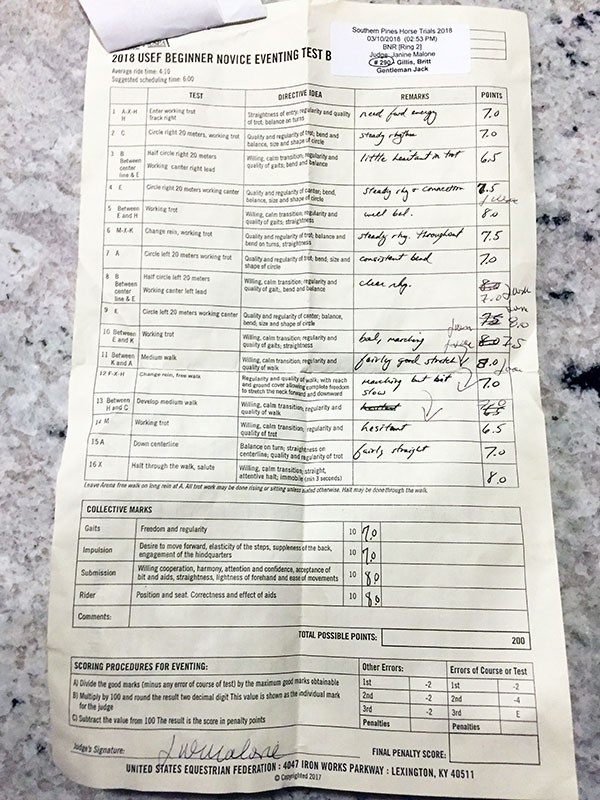 Southern Pines Horse Trials 2018
03/10/2018 (02:53 PM)
BNR [Ring 2]
Judge: Janine Malone
(# 290) Gillis, Britt
Gentleman Jack
2018 USEF BEGINNER NOVICE EVENTING TEST B
Average ride time: 4:10
Suggested scheduling time: 6:00
TEST DIRECTIVE IDEA REMARKS POINTS
1 A-X-H Enter working trot Straightness of entry; regularity and quality need fwd energy 7.0
H Track right of trot; balance on turns
2 C Circle right 20 meters, working trot Quality and regularity of trot; bend and steady rhythm 7.0
balance, size and shape of circle
3 B Half circle right 20 meters Willing, calm transition; regularity and little hesitant in trot 6.5
Between Working canter right lead quality of gaits; bend and balance
center
line & E
4 E Circle right 20 meters working canter Quality and regularity of canter; bend, steady rhy & connection 7.5
balance, size and shape of circle
5 Between Working trot Willing, calm transition; regularity and well bal. 8.0
E and H quality of gaits; straightness
6 M-X-K Change rein, working trot Quality and regularity of trot; balance and steady rhy. throughout 7.5
bend on turns, straightness
7 A Circle left 20 meters working trot Quality and regularity of trot; bend; size and consistent bend 7.0
shape of circle
8 B Half circle left 20 meters Willing, calm transition; regularity and clear rhy. 8.0
Between Working canter left lead quality of gaits; bend and balance 7.0
center
line & E
9 E Circle left 20 meters working canter Quality and regularity of canter; balance, 7.5 8.0
bend; size and shape of circle
10 Between Working trot Willing, calm transition; regularity and bal, marching 8.0 7.5
E and K quality of gaits; straightness
11 Between Medium walk Willing, calm transition; regularity and fairly good stretch 8.0
K and A quality of walk
12 F-X-H Change rein, free walk Regularity and quality of walk; with reach marching but bit 7.0
and ground cover allowing complete freedom slow
to stretch the neck forward and downward
13 Between Develop medium walk Willing, calm transition; regularity and hesitant 7.0
H and C quality of walk 6.5
14 M Working trot Willing, calm transition; regularity and hesitant 6.5
quality of trot
15 A Down centerline Balance on turn; straightness on fairly straight 7.0
centerline; quality and regularity of trot
16 X Halt through the walk, salute Willing, calm transition; straight, 8.0
attentive halt; immobile (min 3 seconds)
Leave Arena free walk on long rein at A. All trot work may be done rising or sitting unless stated otherwise. Halt may be done through the walk.
COLLECTIVE MARKS
Gaits Freedom and regularity 10 7.0
Impulsion Desire to move forward, elasticity of the steps, suppleness of the back, 10 7.0
engagement of the hindquarters
Submission Willing cooperation, harmony, attention and confidence, acceptance of 10 8.0
bit and aids, straightness, lightness of forehand and ease of movements
Rider Position and seat. Correctness and effect of aids 10 8.0
Comments:
TOTAL POSSIBLE POINTS: 200
SCORING PROCEDURES FOR EVENTING: Other Errors: Errors of Course or Test
A) Divide the good marks (minus any error of course of test) by the maximum good marks obtainable 1st -2 1st -2
B) Multiply by 100 and round the result two decimal digit This value is shown as the individual mark 2nd -2 2nd -4
for the judge 3rd -2 3rd E
C) Subtract the value from 100 The result is the score in penalty points Penalties Penalties
Judge's Signature: JWMalone FINAL PENALTY SCORE:
UNITED STATES EQUESTRIAN FEDERATION : 4047 IRON WORKS PARKWAY : LEXINGTON, KY 40511
© Copyrighted 2017